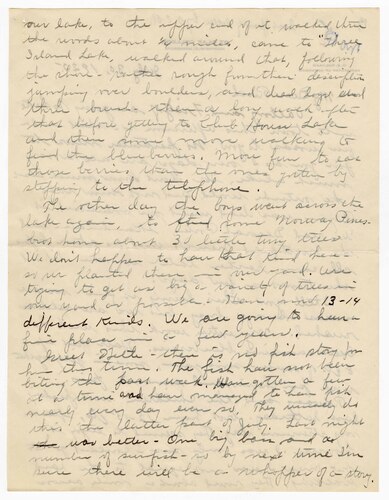 our lake, to the upper end of it walked thru
the woods about 2 miles, came to "Three
Island Lake, walked around that, following
the shore rather rough from their description
jumping over boulders, and dead logs and
thru brush then a long walk after
that before getting to Club House Lake
and then some more walking to
find the blueberries. More fun to eat
those berries, than the ones gotten by
stepping to the telephone.
The other day the boys went across the
lake again, to find some Norway Pines
but home about 30 little tiny trees
We don't happen to have that kind here -
so we planted them in our yard. Are
trying to get as big a variety of trees in
our yard as possible - Have now 13-14
different kinds. We are going to have a
fine place in a few years.
- there is no fish story for
this time. The fish have not been
biting the past week. Have gotten a few
at a time and have managed to have fish
nearly every day even so, They usually do
this the latter part of July. Last night
was better - One big bass and a
number of sunfish - so by next time I'm
sure there will be a whopper of a story.